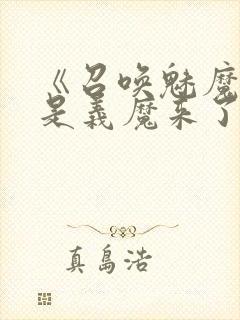 《召唤魅魔
是義魔来了
真島浩